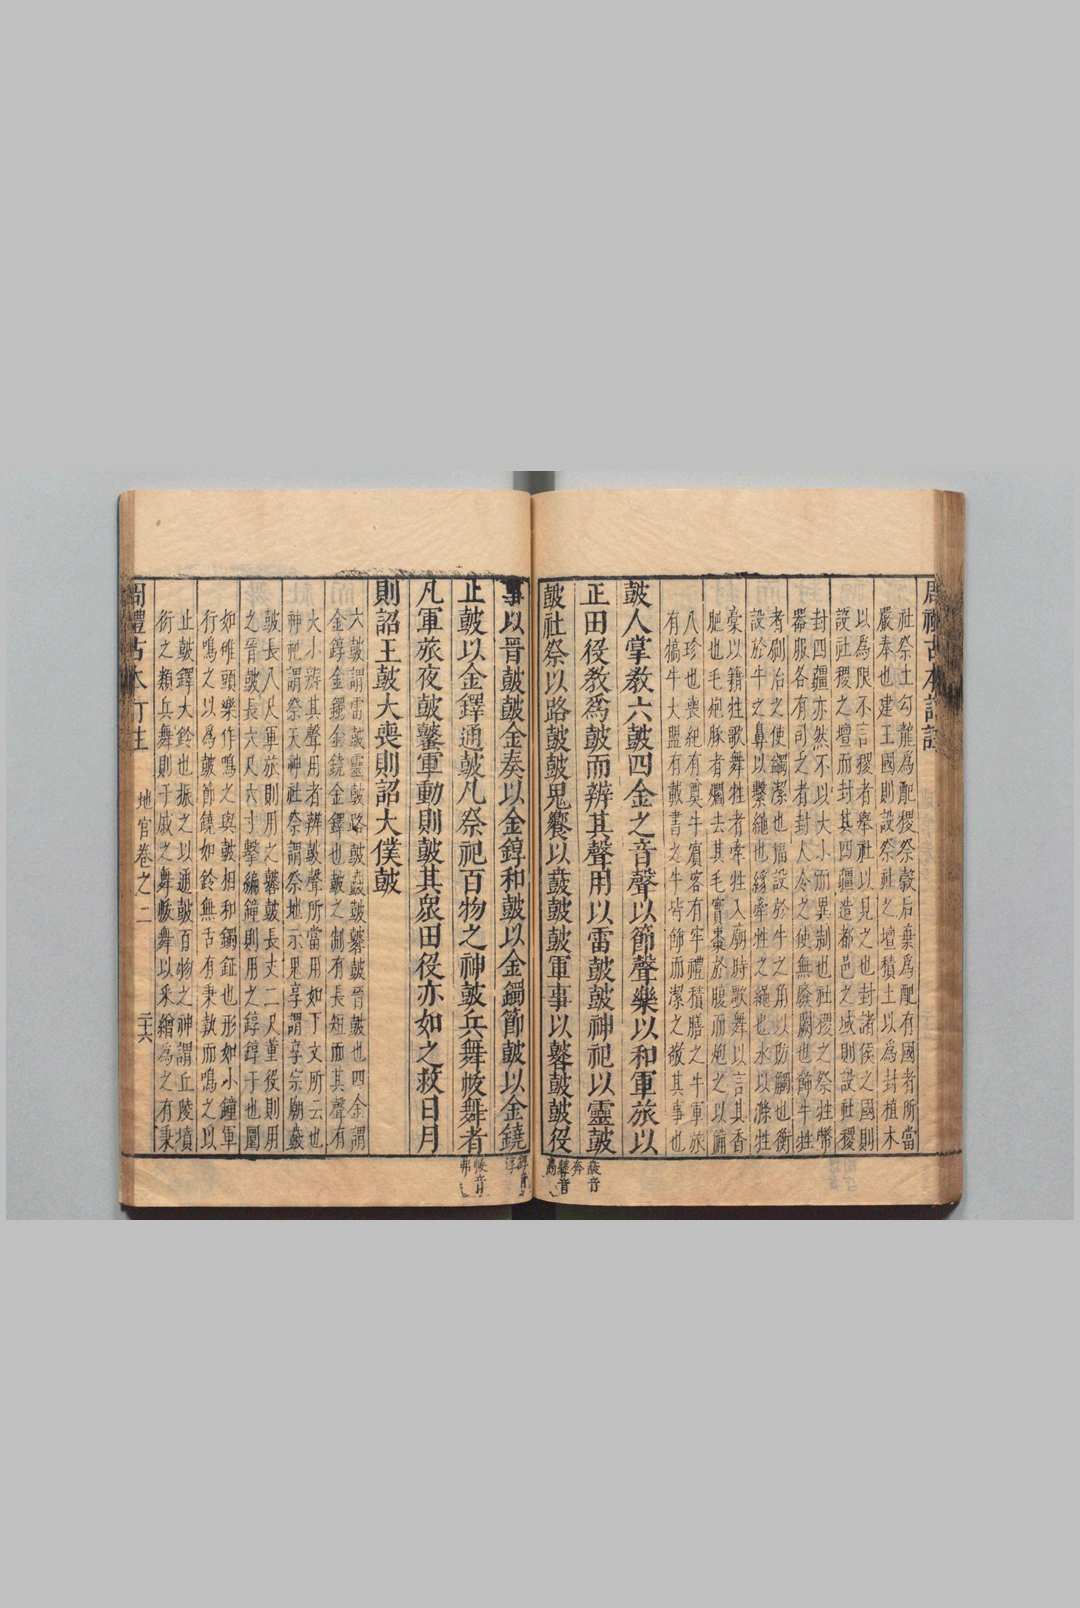 周禮古本訂註
社祭土勾龍爲配稷祭穀后棄爲配有國者所當
嚴奉也建王國則設祭社之壇積土以爲封植木
以爲限不言稷者舉社以見之也封諸侯之國則
設社稷之壇而封其四疆造都邑之域則設社稷
封四疆亦然不以大小而異制也社稷之祭牲幣
器服各有司之者封人令之使無廢闕也飾牛牲
者刷治之使蠲潔也楅設於牛之角以防觸也衡
設於牛之鼻以繫繩也絼牽牲之繩也水以滌牲
稾以籍牲歌舞牲者牽牲入廟時歌舞以言其香
肥也毛炮豚者爓去其毛實棗於腹而炮之以備
八珍也喪紀有奠牛賓客有牢禮積膳之牛軍旅
有犒牛大盟有載書之牛皆飾而潔之敬其事也
鼓人掌教六鼓四金之音聲以節聲樂以和軍旅以
正田役教爲鼓而辨其聲用以雷鼓鼓神祀以靈鼓
鼓社祭以路鼓鼓鬼饗以鼖鼓鼓軍事以鼛鼓鼓役
鼖音
奔
鼛音
高
事以晉鼓鼓金奏以金錞和鼓以金鐲節鼓以金鐃
止鼓以金鐸通鼓凡祭祀百物之神鼓兵舞帗舞者
凡軍旅夜鼓鼜軍動則鼓其衆田役亦如之救日月
則詔王鼓大喪則詔大僕鼓
錞音
淳
帗音
弗
六鼓謂雷鼓靈鼓路鼓鼖鼓鼛鼓晉鼓也四金謂
金錞金鐲金鐃金鐸也鼓之制有長短而其聲有
大小辨其聲用者辨鼓聲所當用如下文所云也
神祀謂祭天神社祭謂祭地示鬼享謂享宗廟鼖
鼓長八尺軍旅則用之鼛鼓長丈二尺董役則用
之晉鼓長六尺六寸擊編鐘則用之錞錞于也圜
如碓頭樂作鳴之與鼓相和鐲鉦也形如小鐘軍
行鳴之以爲鼓節鐃如鈴無舌有秉執而鳴之以
止鼓鐸大鈴也振之以通鼓百物之神謂丘陵墳
衍之類兵舞則于戚之舞帗舞以釆繒爲之有秉
周禮古本訂註
地官卷之二
二十六